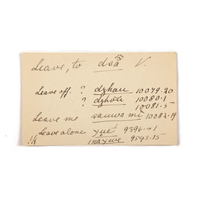 Leave, to doā V.
Leave off. ? dzhau 10079.20
? dzhole 10080.1
10081.5
Leave me sauwa mi 10082.19
Leave alone yuē 9396-1
mayme 9543.15